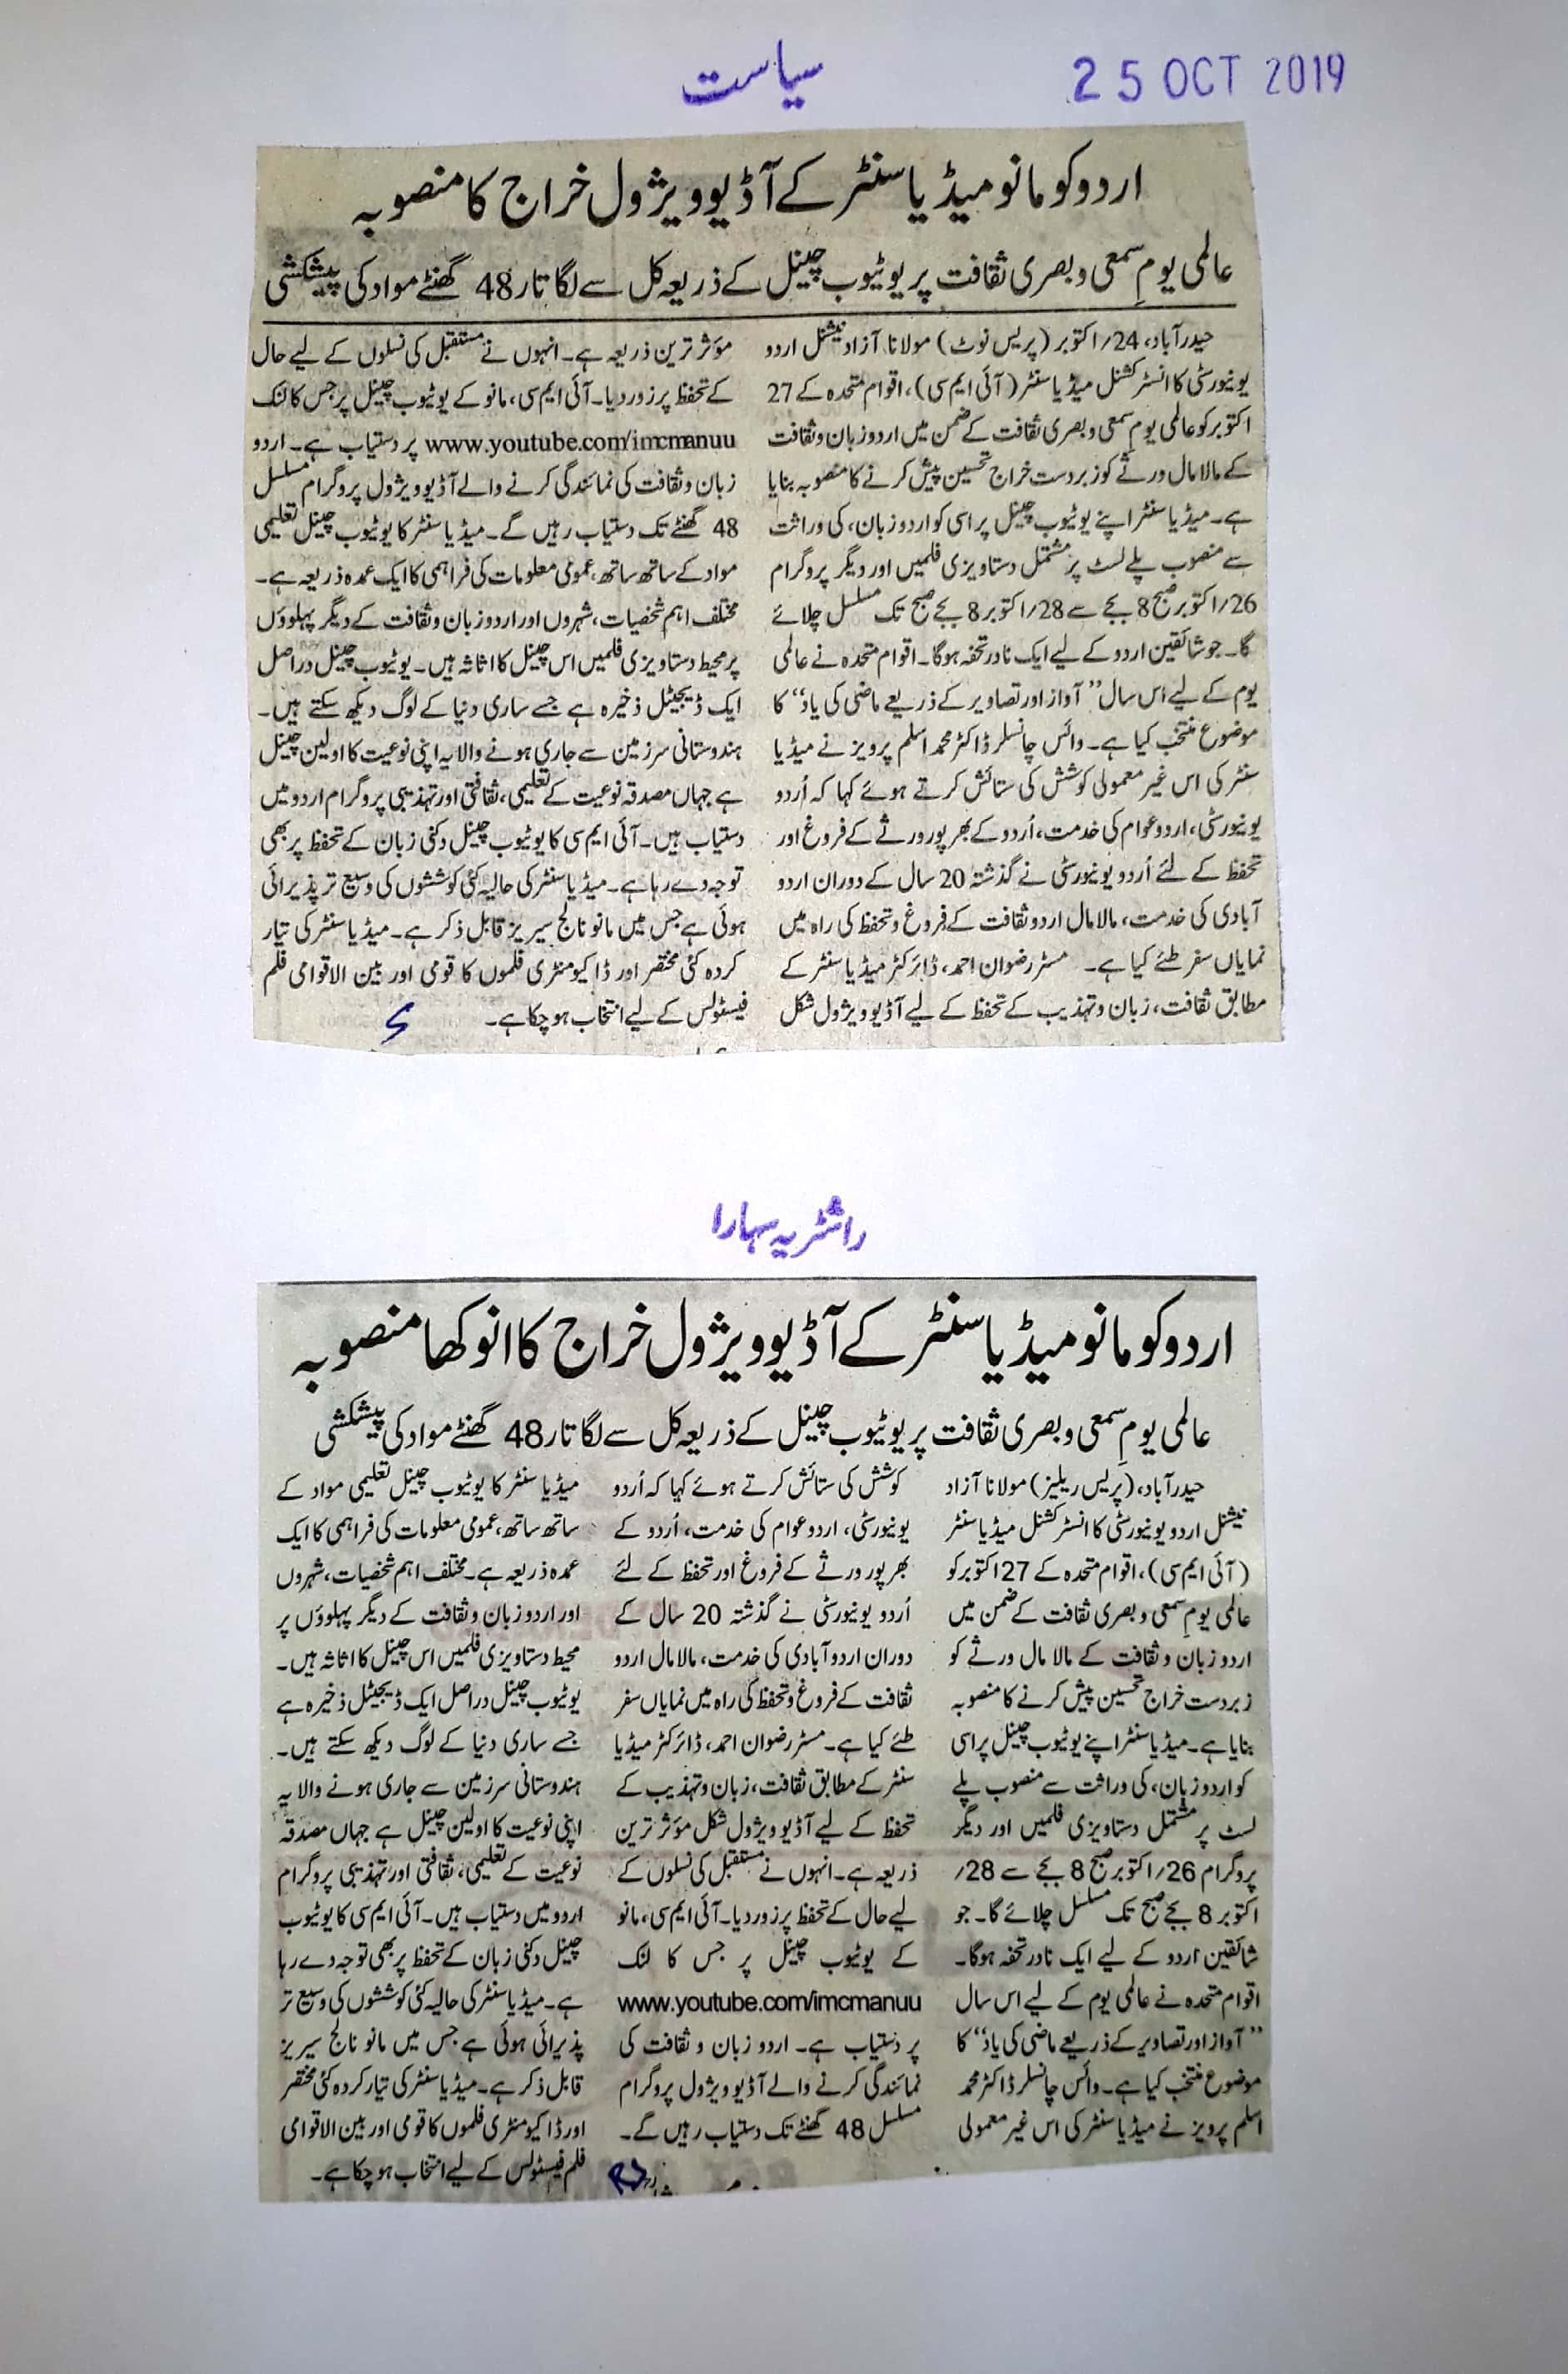 سیاست
25 OCT 2019
اردو کو مانو میڈیا سنٹر کے آڈیو ویژول خراج کا منصوبہ
عالمی یومِ سمعی و بصری ثقافت پر یوٹیوب چینل کے ذریعہ کل سے لگا تار 48 گھنٹے مواد کی پیشکشی
حیدرآباد، 24/اکتوبر (پریس نوٹ) مولانا آزاد نیشنل اردو
یونیورسٹی کا انسٹرکشنل میڈیا سنٹر (آئی ایم سی)، اقوام متحدہ کے 27
اکتوبر کو عالمی یومِ سمعی و بصری ثقافت کے ضمن میں اردو زبان و ثقافت
کے مالا مال ورثے کو زبردست خراج تحسین پیش کرنے کا منصوبہ بنایا
ہے۔ میڈیا سنٹر اپنے یوٹیوب چینل پر اسی کو اردو زبان، کی وراثت
سے منصوب پلے لسٹ پر مشتمل دستاویزی فلمیں اور دیگر پروگرام
26/اکتوبر صبح 8 بجے سے 28/اکتوبر 8 بجے صبح تک مسلسل چلائے
گا۔ جو شائقین اردو کے لیے ایک نادر تحفہ ہوگا۔ اقوام متحدہ نے عالمی
یوم کے لیے اس سال ”آواز اور تصاویر کے ذریعے ماضی کی یاد“ کا
موضوع منتخب کیا ہے۔ وائس چانسلر ڈاکٹر محمد اسلم پرویز نے میڈیا
سنٹر کی اس غیر معمولی کوشش کی ستائش کرتے ہوئے کہا کہ اُردو
یونیورسٹی، اردو عوام کی خدمت، اُردو کے بھر پور ورثے کے فروغ اور
تحفظ کے لئے اُردو یونیورسٹی نے گذشتہ 20 سال کے دوران اردو
آبادی کی خدمت، مالا مال اردو ثقافت کے فروغ و تحفظ کی راہ میں
نمایاں سفر طئے کیا ہے۔ مسٹر رضوان احمد، ڈائرکٹر میڈیا سنٹر کے
مطابق ثقافت، زبان و تہذیب کے تحفظ کے لیے آڈیو ویژول شکل
مؤثر ترین ذریعہ ہے۔ انہوں نے مستقبل کی نسلوں کے لیے حال
کے تحفظ پر زور دیا۔ آئی ایم سی، مانو کے یوٹیوب چینل پر جس کا لنک
www.youtube.com/imcmanuu پر دستیاب ہے۔ اردو
زبان و ثقافت کی نمائندگی کرنے والے آڈیو ویژول پروگرام مسلسل
48 گھنٹے تک دستیاب رہیں گے۔ میڈیا سنٹر کا یوٹیوب چینل تعلیمی
مواد کے ساتھ ساتھ، عمومی معلومات کی فراہمی کا ایک عمدہ ذریعہ ہے۔
مختلف اہم شخصیات، شہروں اور اردو زبان و ثقافت کے دیگر پہلوؤں
پر محیط دستاویزی فلمیں اس چینل کا اثاثہ ہیں۔ یوٹیوب چینل دراصل
ایک ڈیجیٹل ذخیرہ ہے جسے ساری دنیا کے لوگ دیکھ سکتے ہیں۔
ہندوستانی سرزمین سے جاری ہونے والا یہ اپنی نوعیت کا اولین چینل
ہے جہاں مصدقہ نوعیت کے تعلیمی، ثقافتی اور تہذیبی پروگرام اردو میں
دستیاب ہیں۔ آئی ایم سی کا یوٹیوب چینل دکنی زبان کے تحفظ پر بھی
توجہ دے رہا ہے۔ میڈیا سنٹر کی حالیہ کئی کوششوں کی وسیع تر پذیرائی
ہوئی ہے جس میں مانو نالج سیریز قابل ذکر ہے۔ میڈیا سنٹر کی تیار
کردہ کئی مختصر اور ڈاکیومنٹری فلموں کا قومی اور بین الاقوامی فلم
فیسٹولس کے لیے انتخاب ہو چکا ہے۔
راشٹریہ سہارا
اردو کو مانو میڈیا سنٹر کے آڈیو ویژول خراج کا انوکھا منصوبہ
عالمی یومِ سمعی و بصری ثقافت پر یوٹیوب چینل کے ذریعہ کل سے لگا تار 48 گھنٹے مواد کی پیشکشی
حیدرآباد، (پریس ریلیز) مولانا آزاد
نیشنل اردو یونیورسٹی کا انسٹرکشنل میڈیا سنٹر
(آئی ایم سی)، اقوام متحدہ کے 27 اکتوبر کو
عالمی یومِ سمعی و بصری ثقافت کے ضمن میں
اردو زبان و ثقافت کے مالا مال ورثے کو
زبردست خراج تحسین پیش کرنے کا منصوبہ
بنایا ہے۔ میڈیا سنٹر اپنے یوٹیوب چینل پر اسی
کو اردو زبان، کی وراثت سے منصوب پلے
لسٹ پر مشتمل دستاویزی فلمیں اور دیگر
پروگرام 26/اکتوبر صبح 8 بجے سے 28/
اکتوبر 8 بجے صبح تک مسلسل چلائے گا۔ جو
شائقین اردو کے لیے ایک نادر تحفہ ہوگا۔
اقوام متحدہ نے عالمی یوم کے لیے اس سال
”آواز اور تصاویر کے ذریعے ماضی کی یاد“ کا
موضوع منتخب کیا ہے۔ وائس چانسلر ڈاکٹر محمد
اسلم پرویز نے میڈیا سنٹر کی اس غیر معمولی
کوشش کی ستائش کرتے ہوئے کہا کہ اُردو
یونیورسٹی، اردو عوام کی خدمت، اُردو کے
بھر پور ورثے کے فروغ اور تحفظ کے لئے
اُردو یونیورسٹی نے گذشتہ 20 سال کے
دوران اردو آبادی کی خدمت، مالا مال اردو
ثقافت کے فروغ و تحفظ کی راہ میں نمایاں سفر
طئے کیا ہے۔ مسٹر رضوان احمد، ڈائرکٹر میڈیا
سنٹر کے مطابق ثقافت، زبان و تہذیب کے
تحفظ کے لیے آڈیو ویژول شکل مؤثر ترین
ذریعہ ہے۔ انہوں نے مستقبل کی نسلوں کے
لیے حال کے تحفظ پر زور دیا۔ آئی ایم سی، مانو
کے یوٹیوب چینل پر جس کا لنک
www.youtube.com/imcmanuu
پر دستیاب ہے۔ اردو زبان و ثقافت کی
نمائندگی کرنے والے آڈیو ویژول پروگرام
مسلسل 48 گھنٹے تک دستیاب رہیں گے۔
میڈیا سنٹر کا یوٹیوب چینل تعلیمی مواد کے
ساتھ ساتھ، عمومی معلومات کی فراہمی کا ایک
عمدہ ذریعہ ہے۔ مختلف اہم شخصیات، شہروں
اور اردو زبان و ثقافت کے دیگر پہلوؤں پر
محیط دستاویزی فلمیں اس چینل کا اثاثہ ہیں۔
یوٹیوب چینل دراصل ایک ڈیجیٹل ذخیرہ ہے
جسے ساری دنیا کے لوگ دیکھ سکتے ہیں۔
ہندوستانی سرزمین سے جاری ہونے والا یہ
اپنی نوعیت کا اولین چینل ہے جہاں مصدقہ
نوعیت کے تعلیمی، ثقافتی اور تہذیبی پروگرام
اردو میں دستیاب ہیں۔ آئی ایم سی کا یوٹیوب
چینل دکنی زبان کے تحفظ پر بھی توجہ دے رہا
ہے۔ میڈیا سنٹر کی حالیہ کئی کوششوں کی وسیع تر
پذیرائی ہوئی ہے جس میں مانو نالج سیریز
قابل ذکر ہے۔ میڈیا سنٹر کی تیار کردہ کئی مختصر
اور ڈاکیومنٹری فلموں کا قومی اور بین الاقوامی
فلم فیسٹولس کے لیے انتخاب ہو چکا ہے۔